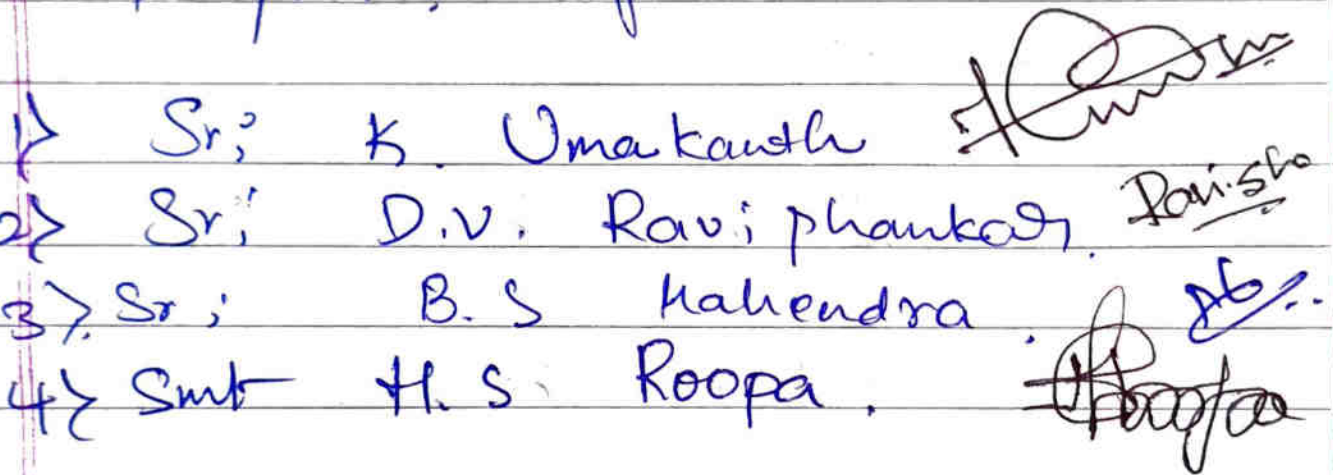 1) Sri K. Umakanth
2) Sri D.V. Ravi shankar.
3) Sri B.S Mahendra.
4) Smt H.S. Roopa.